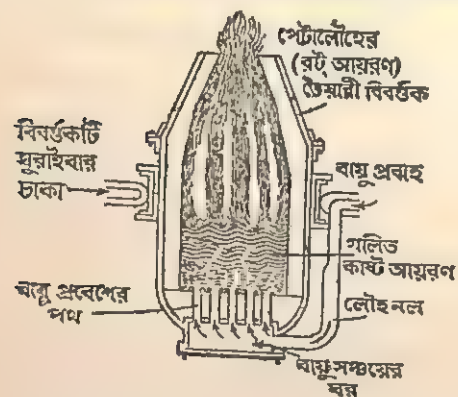 পেটালৌহের
(রট্ আয়রণ)
তৈয়ারী বিবর্ত্তক
বিবর্ত্তকটি
ঘুরাইবার
চাকা
বায়ু প্রবাহ
গলিত
কাষ্ট আয়রণ
লৌহ নল
বায়ু প্রবেশের
পথ
বায়ু সঞ্চয়ের
ঘর